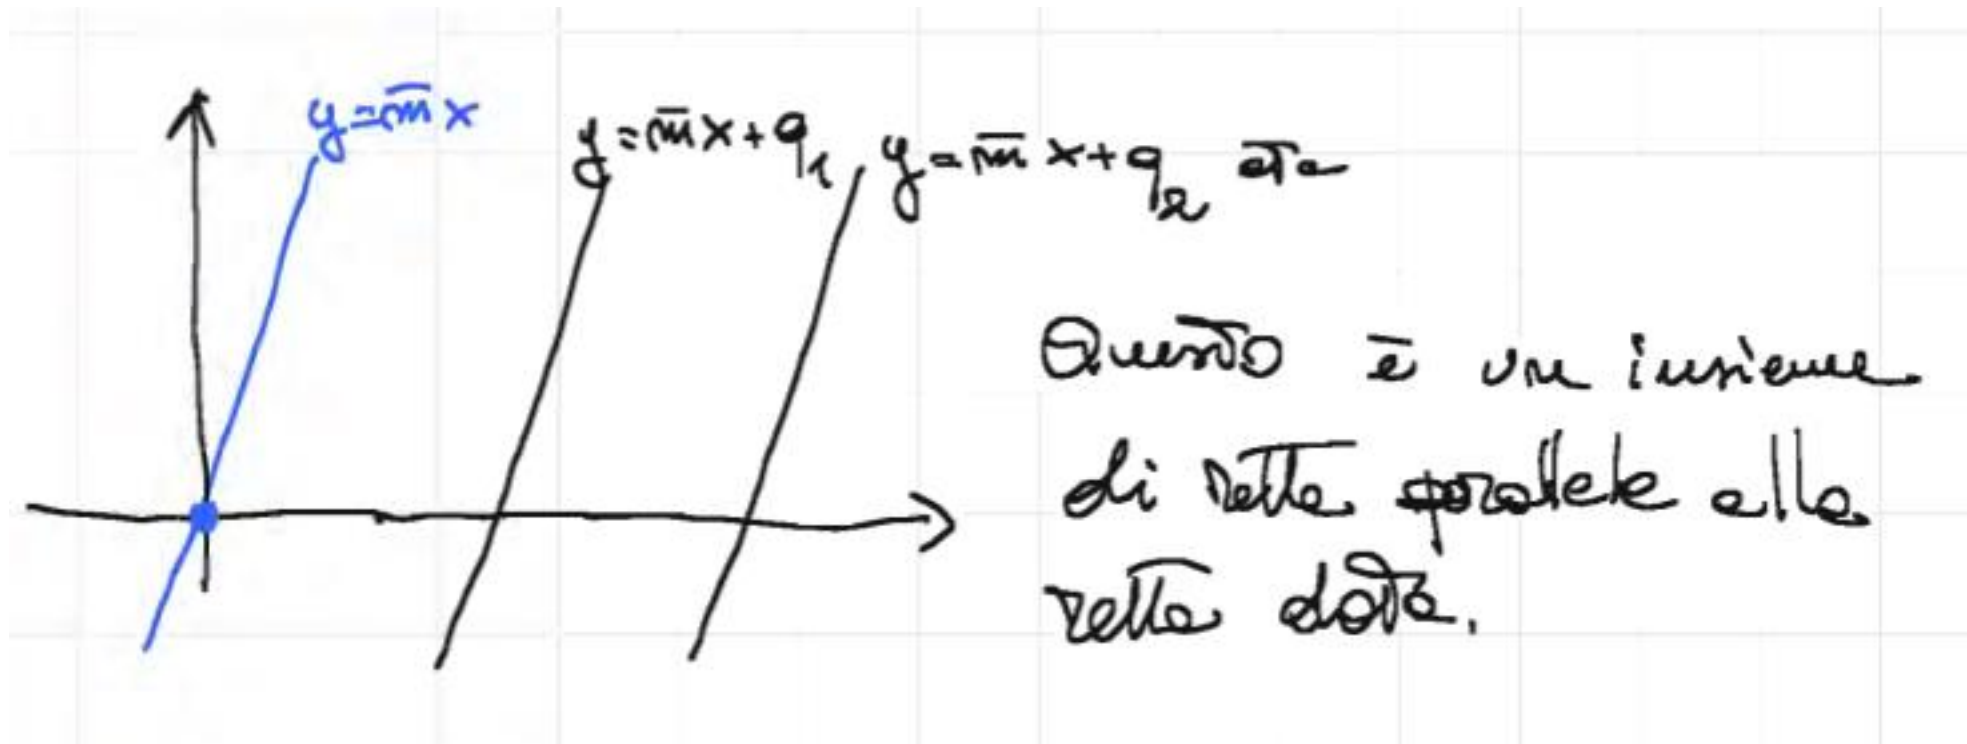 y=m̅x
y=m̅x+q₁
y=m̅x+q₂ etc
Questo è un insieme
di rette parallele alla
retta data.